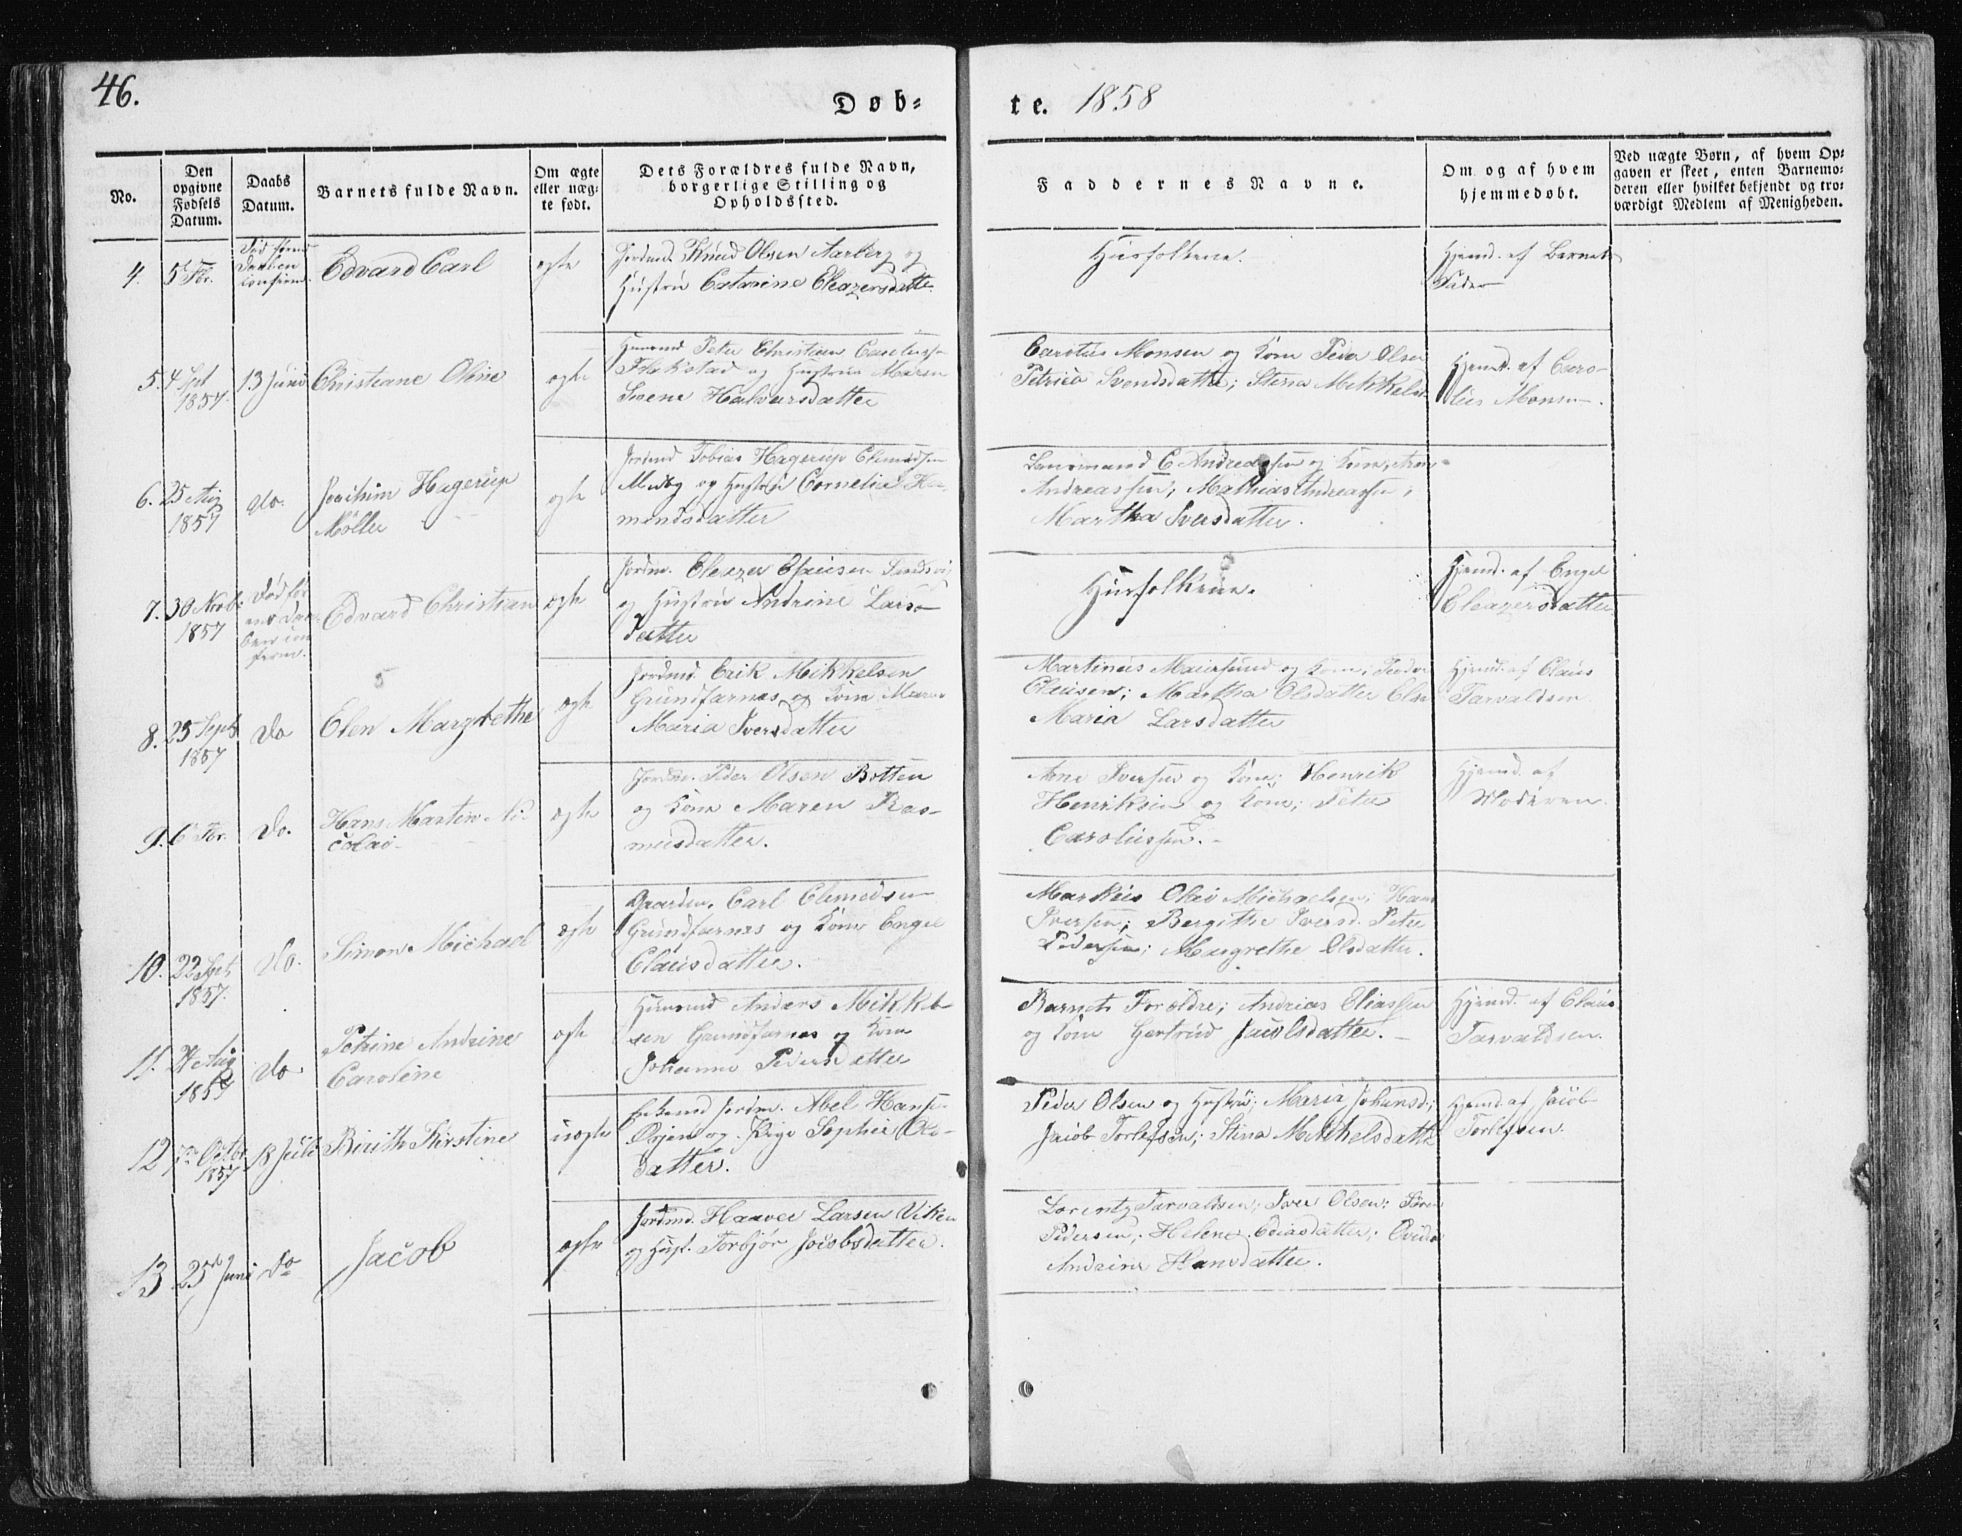 46.
Døb-
te. 1858
No.
Den opgivne Fødsels Datum.
Daabs Datum.
Barnets fulde Navn.
Om ægte eller uægte født.
Dets Forældres fulde Navn, borgerlige Stilling og Opholdssted.
Faddernes Navne.
Om og af hvem hjemmedøbt.
Ved uægte Børn, af hvem Opgaven er skeet, enten Barnemoderen eller hvilket bekjendt og troværdigt Medlem af Menigheden.
4. 5 Fbr.
Død førend Daaben confirm.
Edvard Carl
ægte
Jordmd. Knud Olsen Aarberg og
Hustru Catrine Eleazersdatter
Husfolkene.
Hjemd. af Barnets
Fader
5. 4 Sept
1857.
13 Juni
Christiane Oline
ægte
Huusmd Peter Christian
Flakstad og Hustru Maren
Halvorsdatter
Monsen og Kone Peder Olsen
Svendsdatter; Stena Mikkelsd.
Hjemd. af Caro-
lius Monsen.
6. 25 Aug
1857
do.
Joachim Hagerup
Möller
ægte
Jordmd Tobias Hagerup
og Hustru Cornelia
mondsdatter
C Andreassen og Kone;
Andreassen; Mathias Andreassen;
Martha Iversdatter.
7. 30 Novb.
1857
Død før
end Daa-
ben con
firm.
Edvard Christian
ægte
Jordm. Eleazer Clausen
og Hustru Andrine Lars-
datter
Husfolkene.
Hjemd. af Engel
Eleazersdatter
8. 25 Sept
1857
do
Elen Margrethe
ægte
Jordmd. Erik Mikkelsen
Grundfarnæs og Kone Maren
Maria Iversdatter
Martinus og Kone; Peder
Clausen; Martha Olsdatter
Maria Larsdatter
Hjemd. af Claus
Tarvaldsen
9. 6 Fbr.
do.
Hans Martin Ni-
colai
ægte
Jordm. Peder Olsen Botten
og Kone Maren Ras-
musdatter.
Arne Iversen og Kone; Henrik
Henriksen og Kone; Peter
Carolussen.
Hjemd. af
Moderen.
10. 22 Sept
1857.
do.
Simon Michael
ægte
Gaardm. Carl Clemedsen
Grundfarnes og Kone Engel
Clausdatter.
Markus Michaelsen; Hans
Iversen; Bergithe Iversd. Peter
Pedersen; Margrethe Olsdatter.
11. Aug
1857
do
Petrine Andrine
Caroline
ægte
Huusmd Anders Mikkel-
sen Grundfarnæs og Kone
Johanna Pedersdatter
Barnets Forældre; Andreas Eliassen
og Kone Gertrud Jacobsdatter.
Hjemd. af Claus
Tarvaldsen.
12. Octbr.
1857
18 Juli
Birith Kirstine
uægte
Jordm. Abel Hansen
og Pige Sophie
datter.
Peder Olsen og Hustru; Maria Johansd;
Jacob Torlefsen; Stina Mikkelsdatter
Hjemd. af Jacob
Torlefsen.
13 25de Juni
do
Jacob
ægte
Jordmd. Haaver Larsen Viken
og Hust. Torbjør Jacobsdatter.
Lorentz Tarvaldsen; Iver Olsen; Søren
Pedersen; Helene Eliasdatter;
Andrine Hansdatter.